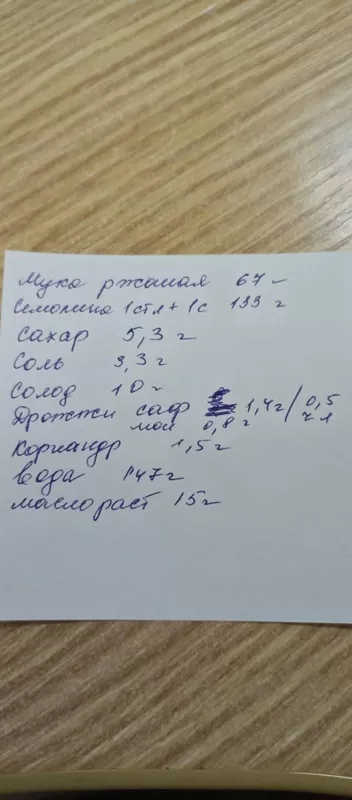 Мука ржаная 67 г
Семолина 1 стл + 1 с 133 г
Сахар 5,3 г
Соль 3,3 г
Солод 10 г
Дрожжи саф 1,4 г / 0,5 чл
мои 0,8 г
Кориандр 1,5 г
вода 147 г
масло раст 15 г